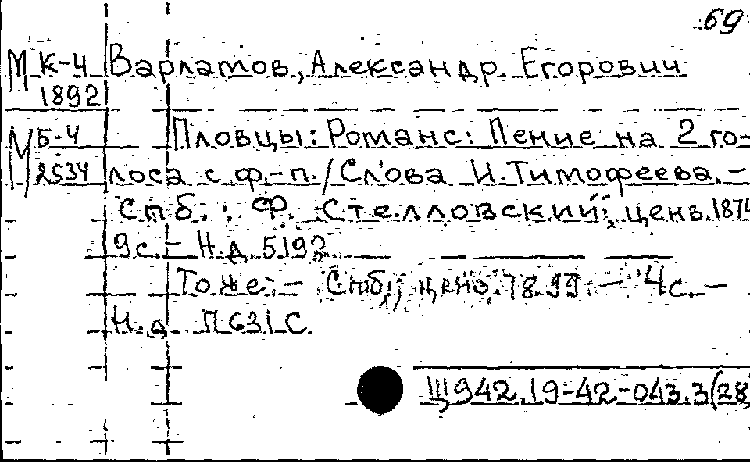 69
М К-4 Варламов, Александр Егорович
1892
М Б-4 Пловцы: Романс: Пение на 2 го-
2534 лоса с ф.-п./Слова И.Тимофеева.-
Спб.: Ф. Стелловский; ценз. 187
9с.- Н.д. 5192
То же.- Спб.; ценз. 1899.- 4с.-
Н.д. П631С.
Щ942.19-42-043.3(28)